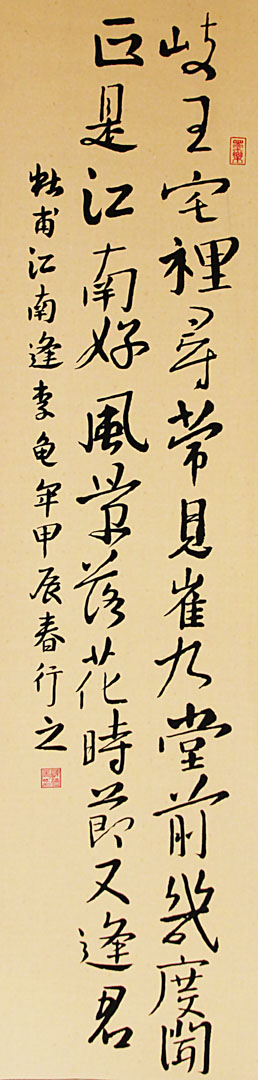 岐王宅裡尋常見崔九堂前幾度聞
正是江南好風景落花時節又逢君
杜甫江南逢李龟年甲辰春行之